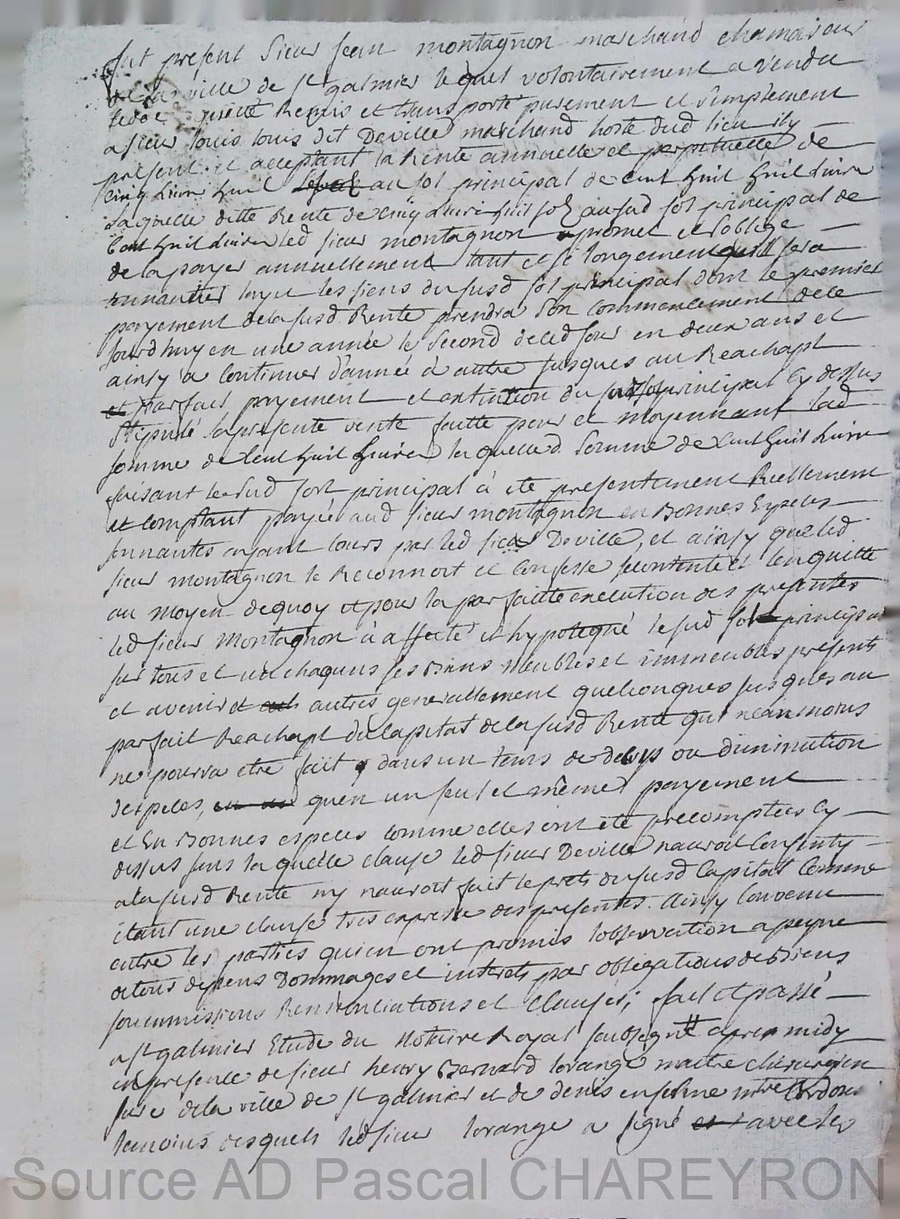 fut présent Sieur Jean montagnon marchand chamoiseur
de la ville de st galmier lequel volontairement a vendu
cede quitté Remis et transporté purement et simplement
a sieur louis louis dit Deville marchand hoste dud lieu icy
présent et acceptant la Rente annuelle et perpetuelle de
Cinq livres huit au sol principal de Cent huit livres
Laquelle ditte Rente de cinq livres huit sols au sud sol principal de
Cent huit livres led sieur montagnon promet et soblige
de la payer annuellement tant et si longement quil sera
luy et les siens du susd sol principal dont le premier
payement de la susd Rente prendra Son commancement de ce
jourdhuy en une année le Second de ced jour en deux ans et
ainsy a Continuer d'année à autre jusques au Reachapt
et parfait payement et extinction du susd sol principal Cy dessus
stipulé la présente vente faitte pour et moyennant lad
somme de Cent huit livres laquelle d. Somme de Cent huit livres
faisant le sud sol principal à eté presentement Reellement
et comptant payée aud sieur montagnon en Bonnes Espèces
sonnantes ayant Cours par led sieur Deville, et ainsy que led
sieur montagnon le Reconnoit et Confesse sen contente et len quitte
au moyen de quoy et pour la parfaitte execution des présentes
led sieur Montagnon à affecté et hypotequé le sud sol principal
sur tous et uns chaquns ses Biens Meubles et immeubles présents
et avenir et autres generallement quelconques jusques au
parfait Reachapt du Capital de la susd Rente qui neanmoins
ne pourra etre fait dans un tems de ou diminution
Despeces, quen un seul et même payement
et En Bonnes especes Comme elles ont été precomptées Cy
dessus sans laquelle clause led sieur Deville nauroit Consenty
a la susd Rente ny nauroit fait le prets du susd Capital Comme
etant une clause tres expresse des présentes. Ainsy Convenu
entre les parties qui en ont promis l'observation a peyne
de tous depens Dommages et interets par obligations de Biens
soumissions Renonciations et Clauses; fait et passé
a st galmier Etude du Notaire Royal soussigné apres midy
en présence de sieur henry Bernard lorange maitre chirurgien
juré de la ville de st galmier et de denis mtre Cordon
temoins desquels led sieur lorange a signé avec les